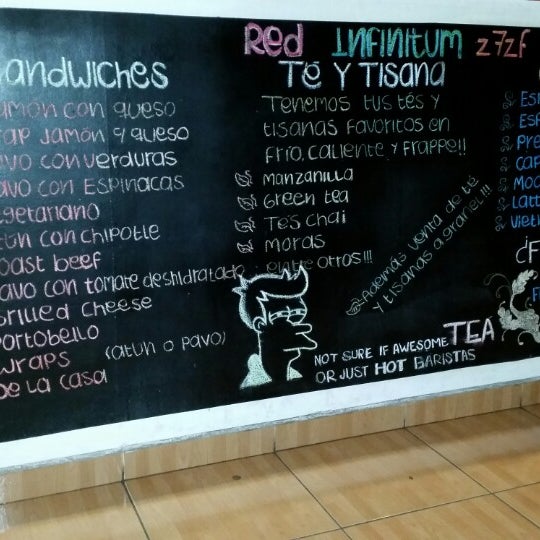 Red Infinitum z7zf
andwiches
amón con queso
rap jamón y queso
avo con verduras
avo con Espinacas
egetariano
tún con chipotle
oast beef
avo con tomate deshidratado
Grilled cheese
Portobello
wraps (atun o pavo)
De la casa
Té y Tisana
Tenemos tus tés y
tisanas favoritos en
frío, caliente y frappe!!
Manzanilla
Green tea
Te's chai
moras
entre otros!!!
Además venta de té
y tisanas a granel!!!
NOT SURE IF AWESOME TEA
OR JUST HOT BARISTAS
Es
Esp
Pre
Cap
Moc
Latt
Viet
¿F